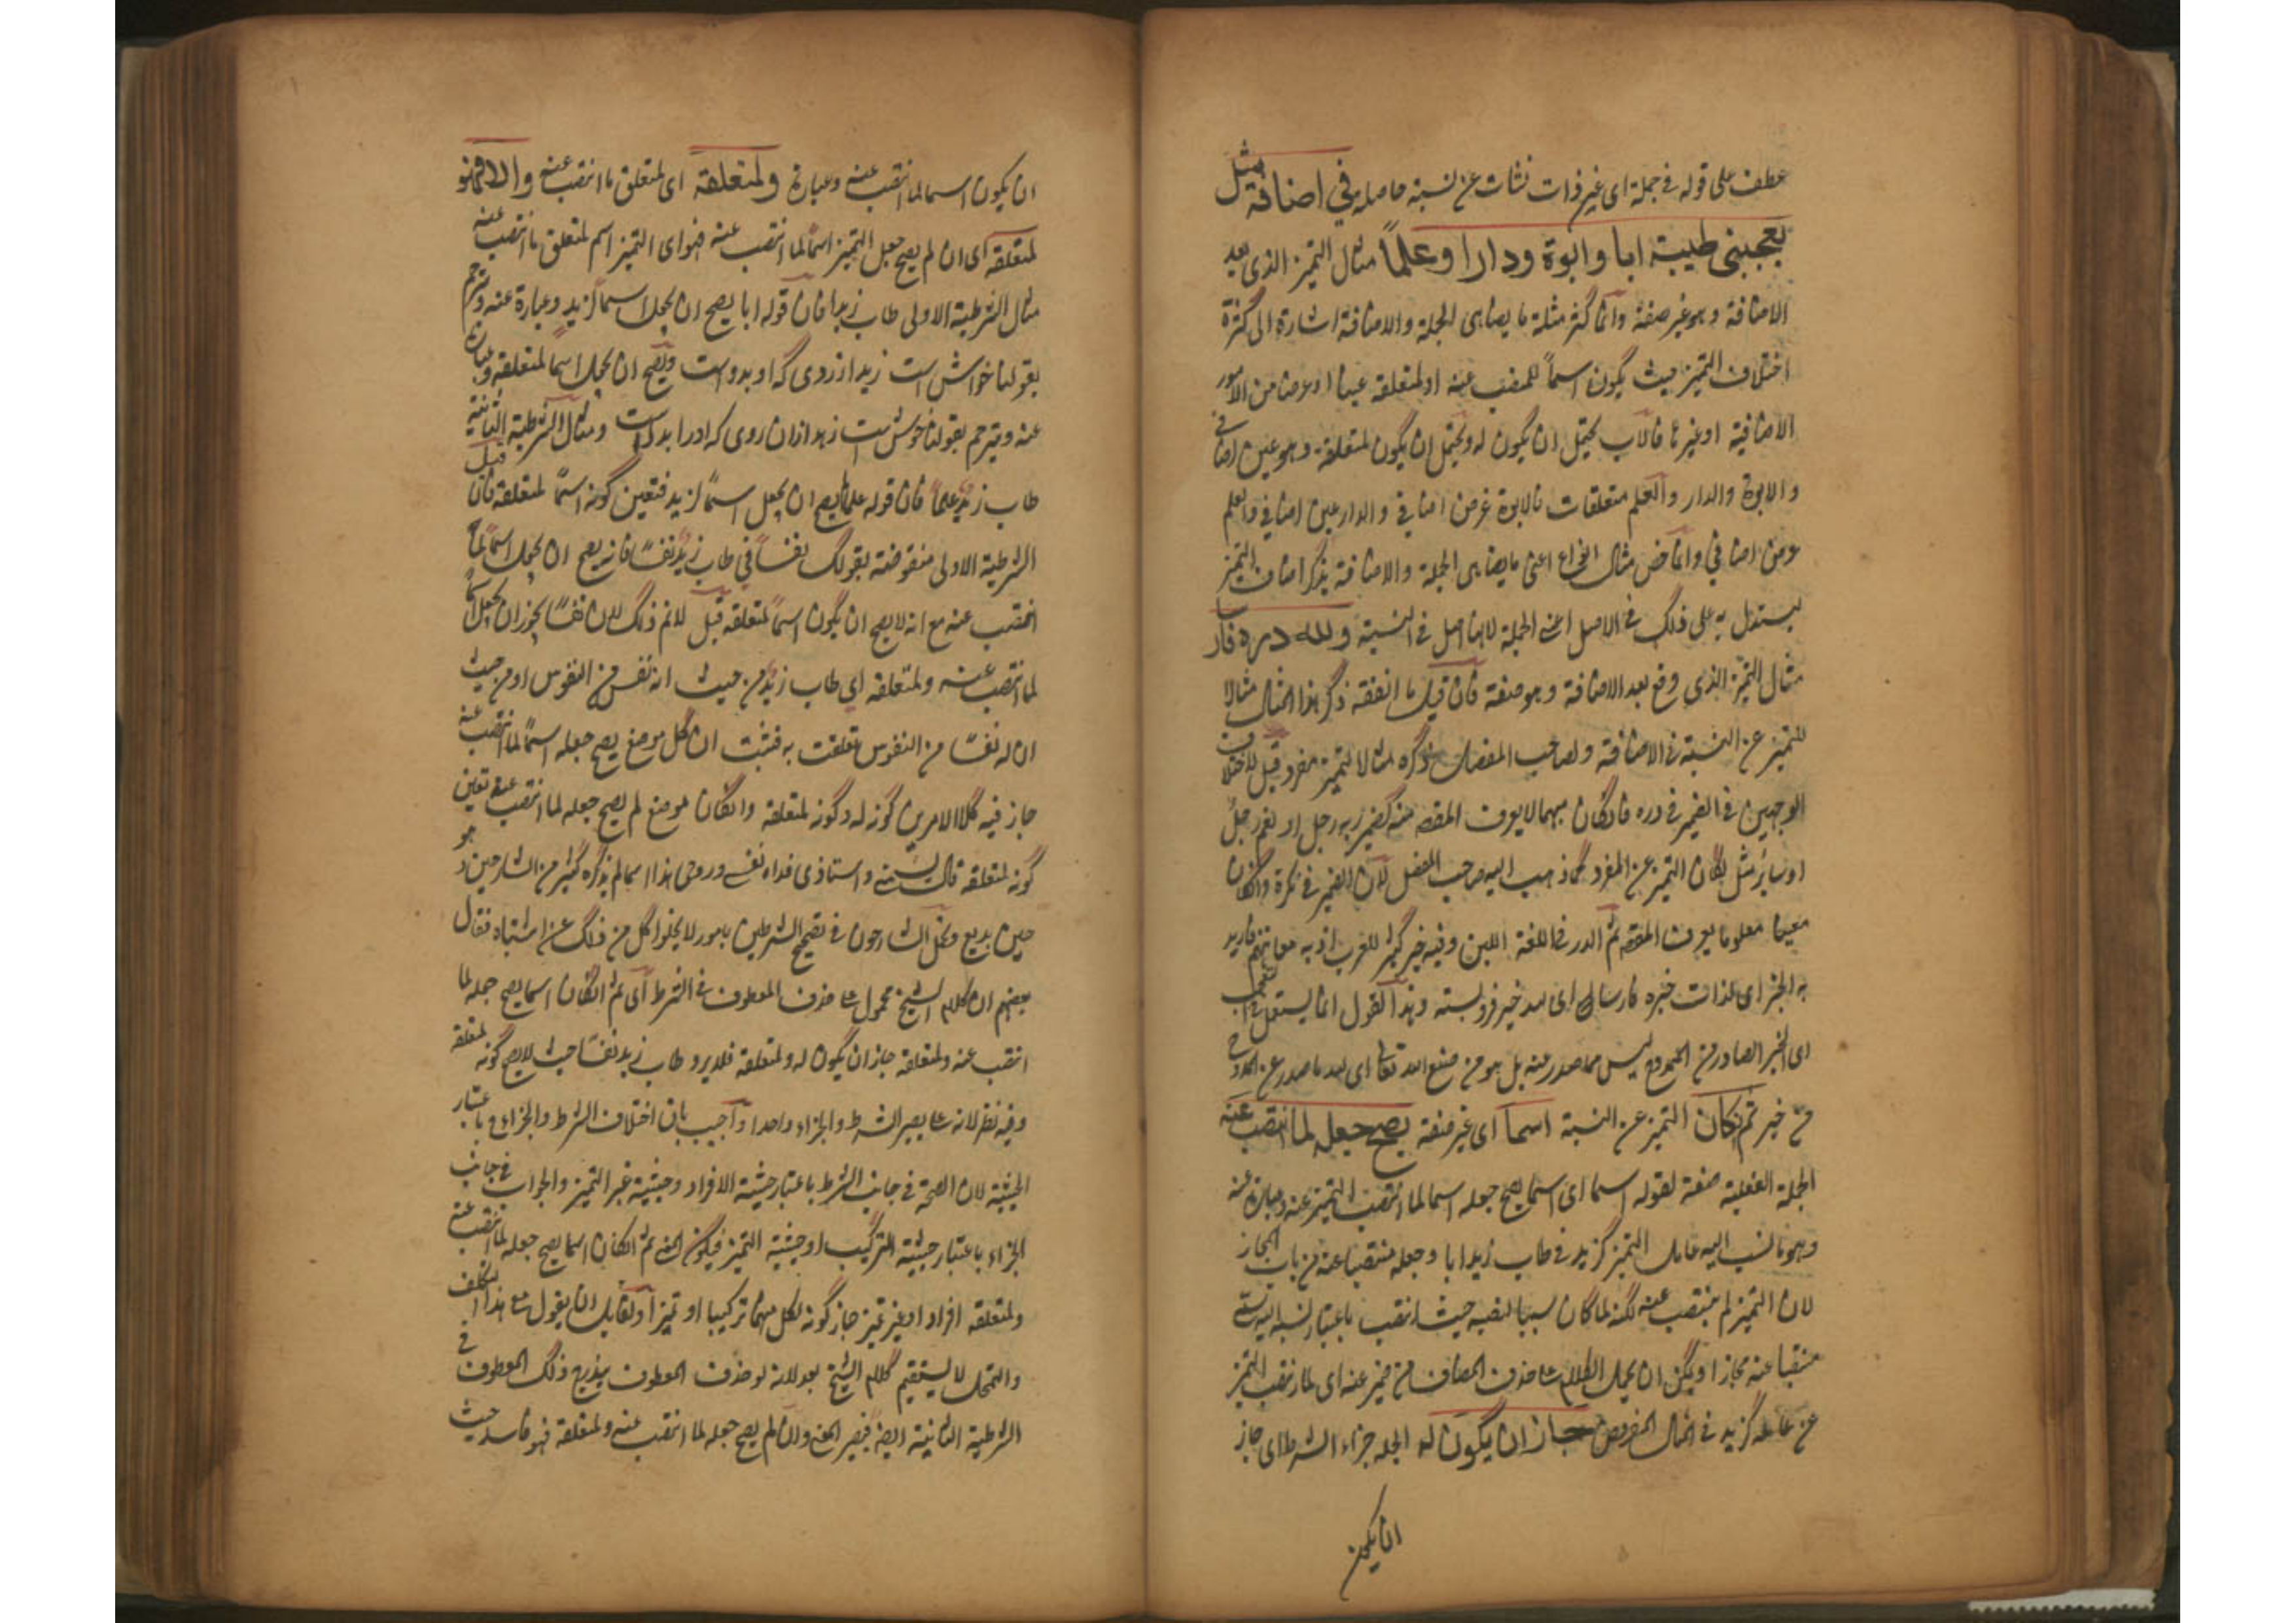 عطف على قوله في جملة اى غير ذات نشات عن نسبة حاصلة في اضافة مثل
يعجبني طيبة ابا وابوة ودارا وعلماً مثال التميز الذى بعد
الاضافة وهو غير صفة وانما كثر مثلة ما يضاهى الجملة والاضافة اشارة الى كثرة
اختلاف التميز حيث يكون اسماً للمنصب عنه او لمتعلقه عينا او عرضا من الامور
الاضافية او غيرها فالاب يحتمل ان يكون له ويحتمل ان يكون لمتعلقة وهو عين اضافي
والابوة والدار والعلم متعلقات فالابوة عرض اضافي والدار عين اضافي والعلم
عرض اضافي وانما خص مثال انواع اعنى ما يضاهى الجملة والاضافة بذكر اضاف التميز
ليستدل به على ذلك في الاصل اعنى الجملة لانها اصل في النسبة ولله دره فارسا
مثال التميز الذى وقع بعد الاضافة وهو صفة فان قيل ما انفقة ذكر هذا المثال مثالا
للتميز عن النسبة في الاضافة ولصاحب المفصل ذكره مثالا لتميز مفرد قيل لاختلاف
الوجهين في الضمير في دره فان كان مبهما لا يعرف المقصد منه كضمير ربه رجل او نعم رجل
او ساء مثل كان التميز عن المفرد كما ذهب اليه صاحب المفصل لان الضمير في نكرة وان كان
معينا معلوما يعرف المقصد ثم الدر في اللغة اللبن وفيه خير كثير للعرب اذ به معاشهم فاريد
به الخير اى لله ذات خيره فارسا اى لله خير فروسته وهذا القول انما يستعمل في التعجب
اى الخير الصادر من الممدوح ليس مما صدر عنه بل هو من صنع الله تعالى اى لله ما صدر عن الممدوح
من خير ثم ان كان التميز عن النسبة اسما اى غير صفة يصح جعله لما انتصب عنه
الجملة الفعلية صفة لقوله اسما اى اسما يصح جعله اسما لما انتصب التميز عنه وعبارة عنه
وهو ما نسب اليه عامل التميز كزيد في طاب زيد ابا وجعله منتصبا عنه من باب المجاز
لان التميز لم ينتصب عنه لكنه لما كان سببا لنصبه حيث انتصب باعتبار نسبة اليه سمي
منتصبا عنه مجازا ويمكن ان يحمل الكلام على حذف المضاف من ضمير عنه اى لما انتصب التميز
عن عامله كزيد في المثال المفروض جاز ان يكون له الجملة جزاء الشرط اى جاز
ان يكون
ان يكون اسما لما انتصب عنه وعبارة ولمتعلقه اى لمتعلق ما انتصب عنه والا فهو
لمتعلقه اى ان لم يصح جعل التميز اسماً لما انتصب عنه فهو اى التميز اسم لمتعلق ما انتصب عنه
مثال الشرطية الاولى طاب زيد ابا فان قوله ابا يصح ان يجعل اسماً لزيد وعبارة عنه ويترجم
بقولنا خوش است زيد از روى كه او بدر است ويصح ان يجعل اسما لمتعلقه وعبارة
عنه ويترجم بقولنا خوش است زيد از ان روى كه اورا بدر است ومثال الشرطية الثانية
طاب زيد علماً فان قوله علما لا يصح ان يجعل اسماً لزيد فتعين كونه اسماً لمتعلقه فان قيل
الشرطية الاولى منقوضة بقولك نفساً في طاب زيد نفساً فانه يصح ان يجعل اسماً لما
انتصب عنه مع انه لا يصح ان يكون اسماً لمتعلقه قيل لا نم ذلك لان نفساً يجوز ان يجعل اسماً
لما انتصب عنه ولمتعلقه اى طاب زيد من حيث انه نفس من النفوس او من حيث
ان له نفسا من النفوس تعلقت به فثبت ان كل موضع يصح جعله اسماً لما انتصب عنه
جاز فيه كلا الامرين كونه له وكونه لمتعلقه وان كان موضع لم يصح جعله لما انتصب عنه تعين
كونه لمتعلقه قال شيخي واستاذى فداه نفسى وروحى هذا اسما لم يذكره كثير من الشارحين وهو
حين بديع وتحمل الشارحون في تصحيح الشرطين بامور لا يخلو كل من ذلك عن اشتباه فقال
بعضهم ان كلام الشيخ محمول على حذف المعطوف في الشرط اى ثم ان كان اسما يصح جعله لما
انتصب عنه ولمتعلقه جاز ان يكون له ولمتعلقه فلا يرد طاب زيد نفسا حيث لا يصح كونه لمتعلقه
وفيه نظر لانه على يصير الشرط والجزاء واحدا واجيب بان اختلاف الشرط والجزاء باعتبار
الحيثية لان الصحة في جانب الشرط باعتبار حيثية الافراد وحيثية غير التميز والجواب في جانب
الجزاء باعتبار حيثية التركيب او حيثية التميز فيكون المعنى ثم ان كان اسما يصح جعله لما انتصب عنه
ولمتعلقه افراد او غير تميز جاز كونه لكل منهما تركيبا او تميزا ولقائل ان يقول مع هذا التكلف
والتمحل لا يستقيم كلام الشيخ بعد لانه لو حذف المعطوف يندرج ذلك المعطوف في
الشرطية الثانية ايضا فيصير المعنى وان لم يصح جعله لما انتصب عنه ولمتعلقه فهو فاسد حيث